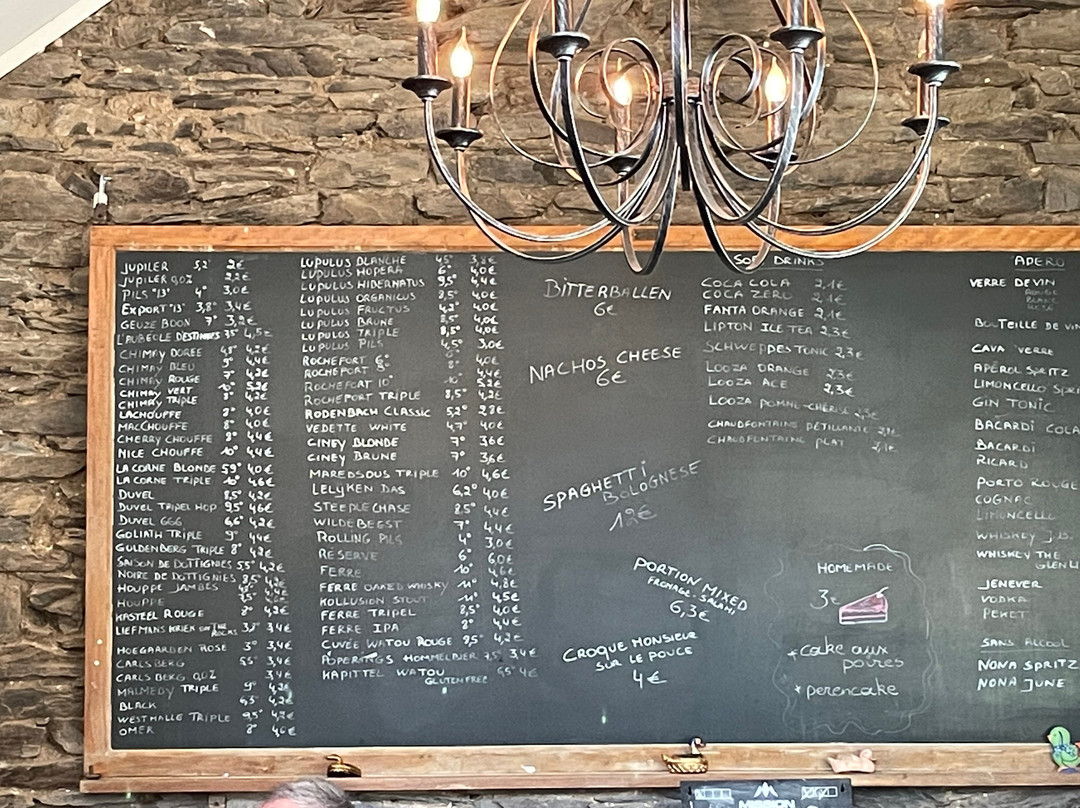 JUPILER 5,2° 2€
JUPILER 0,0% 2,2€
PILS "13" 4° 3,0€
EXPORT "13" 3,8° 3,4€
GEUZE BOON 7° 3,2€
CHIMAY DOREE 4,2€
CHIMAY BLEU 9° 4,4€
CHIMAY ROUGE 7° 4,2€
CHIMAY VERT 10° 5,2€
CHIMAY TRIPLE 8° 4,2€
LACHOUFFE 8° 4,0€
MACCHOUFFE 8° 4,0€
CHERRY CHOUFFE 8° 4,4€
NICE CHOUFFE 10° 4,4€
LA CORNE BLONDE 5,9° 4,0€
LA CORNE TRIPLE 10° 4,6€
DUVEL 8,5° 4,2€
DUVEL TRIPEL HOP 9,5° 4,6€
DUVEL 666 6,6° 4,2€
GOLIATH TRIPLE 9° 4,4€
GULDENBERG TRIPLE 8° 4,2€
SAISON DE DOTTIGNIES 5,5° 4,2€
NOIRE DE DOTTIGNIES 8,5° 4,2€
HOUPPE JAMBES
HOUPPE
KASTEEL ROUGE 8° 4,2€
LIEFMANS KRIEK ON THE ROCKS 3,4€
HOEGAARDEN ROSÉ 3° 3,4€
CARLSBERG 5,5° 3,4€
CARLSBERG 0,0% 3,4€
MALMEDY TRIPLE 9° 4,2€
BLACK 4,2€
WESTMALLE TRIPLE 9,5° 4,2€
OMER 8° 4,6€
LUPULUS BLANCHE 4,5° 3,8€
LUPULUS HOPERA 6° 4,0€
LUPULUS HIBERNATUS 9,5° 4,4€
LUPULUS ORGANICUS 8,5° 4,0€
LUPULUS FRUCTUS 4,2° 4,0€
LUPULUS BRUNE 8,5° 4,0€
LUPULUS TRIPLE 8,5° 4,0€
LUPULUS PILS 4,5° 3,0€
ROCHEFORT 6° 4,0€
ROCHEFORT 8°
ROCHEFORT 10° 5,2€
ROCHEFORT TRIPLE 8,5° 4,2€
RODENBACH CLASSIC 5,2° 2,8€
VEDETTE WHITE 4,7° 4,0€
CINEY BLONDE 7° 3,6€
CINEY BRUNE 7° 3,6€
MAREDSOUS TRIPLE 10° 4,6€
LELYKEN DAS 6,2° 4,0€
STEEPLECHASE 8,5° 4,4€
WILDEBEEST 7° 4,4€
ROLLING PILS 4° 3,0€
RÉSERVE 6° 6,0€
FERRE 10° 4,6€
FERRE OAKED WHISKY 11° 4,8€
KOLLUSION STOUT 11° 4,5€
FERRE TRIPEL 8,5° 4,0€
FERRE IPA 8° 4,4€
CUVÉE WATOU ROUGE 8,5° 4,2€
POPERINGS HOMMELBIER 7,5° 3,4€
KAPITTEL WATOU 6,5° 4€
GLUTENFREE
BITTERBALLEN
6€
NACHOS CHEESE
6€
SPAGHETTI
BOLOGNESE
12€
PORTION MIXED
FROMAGE - SALAMI
6,3€
CROQUE MONSIEUR
SUR LE POUCE
4€
SOFT DRINKS
COCA COLA 2,1€
COCA ZERO 2,1€
FANTA ORANGE 2,1€
LIPTON ICE TEA 2,3€
SCHWEPPES TONIC 2,3€
LOOZA ORANGE 2,3€
LOOZA ACE 2,3€
LOOZA POMME-CERISE 2,3€
CHAUDFONTAINE PÉTILLANTE 2,1€
CHAUDFONTAINE PLAT 2,1€
HOMEMADE
3€
* cake aux
poires
* perencake
APERO
VERRE DE VIN
ROUGE
BLANC
ROSÉ
BOUTEILLE DE VIN
CAVA VERRE
APÉROL SPRITZ
LIMONCELLO SPRI
GIN TONIC
BACARDI COLA
BACARDI
RICARD
PORTO ROUGE
COGNAC
LIMONCELLO
WHISKEY J.B.
WHISKEY THE
GLENLI
JENEVER
VODKA
PEKET
SANS ALCOOL
NONA SPRITZ
NONA JUNE
MISSION